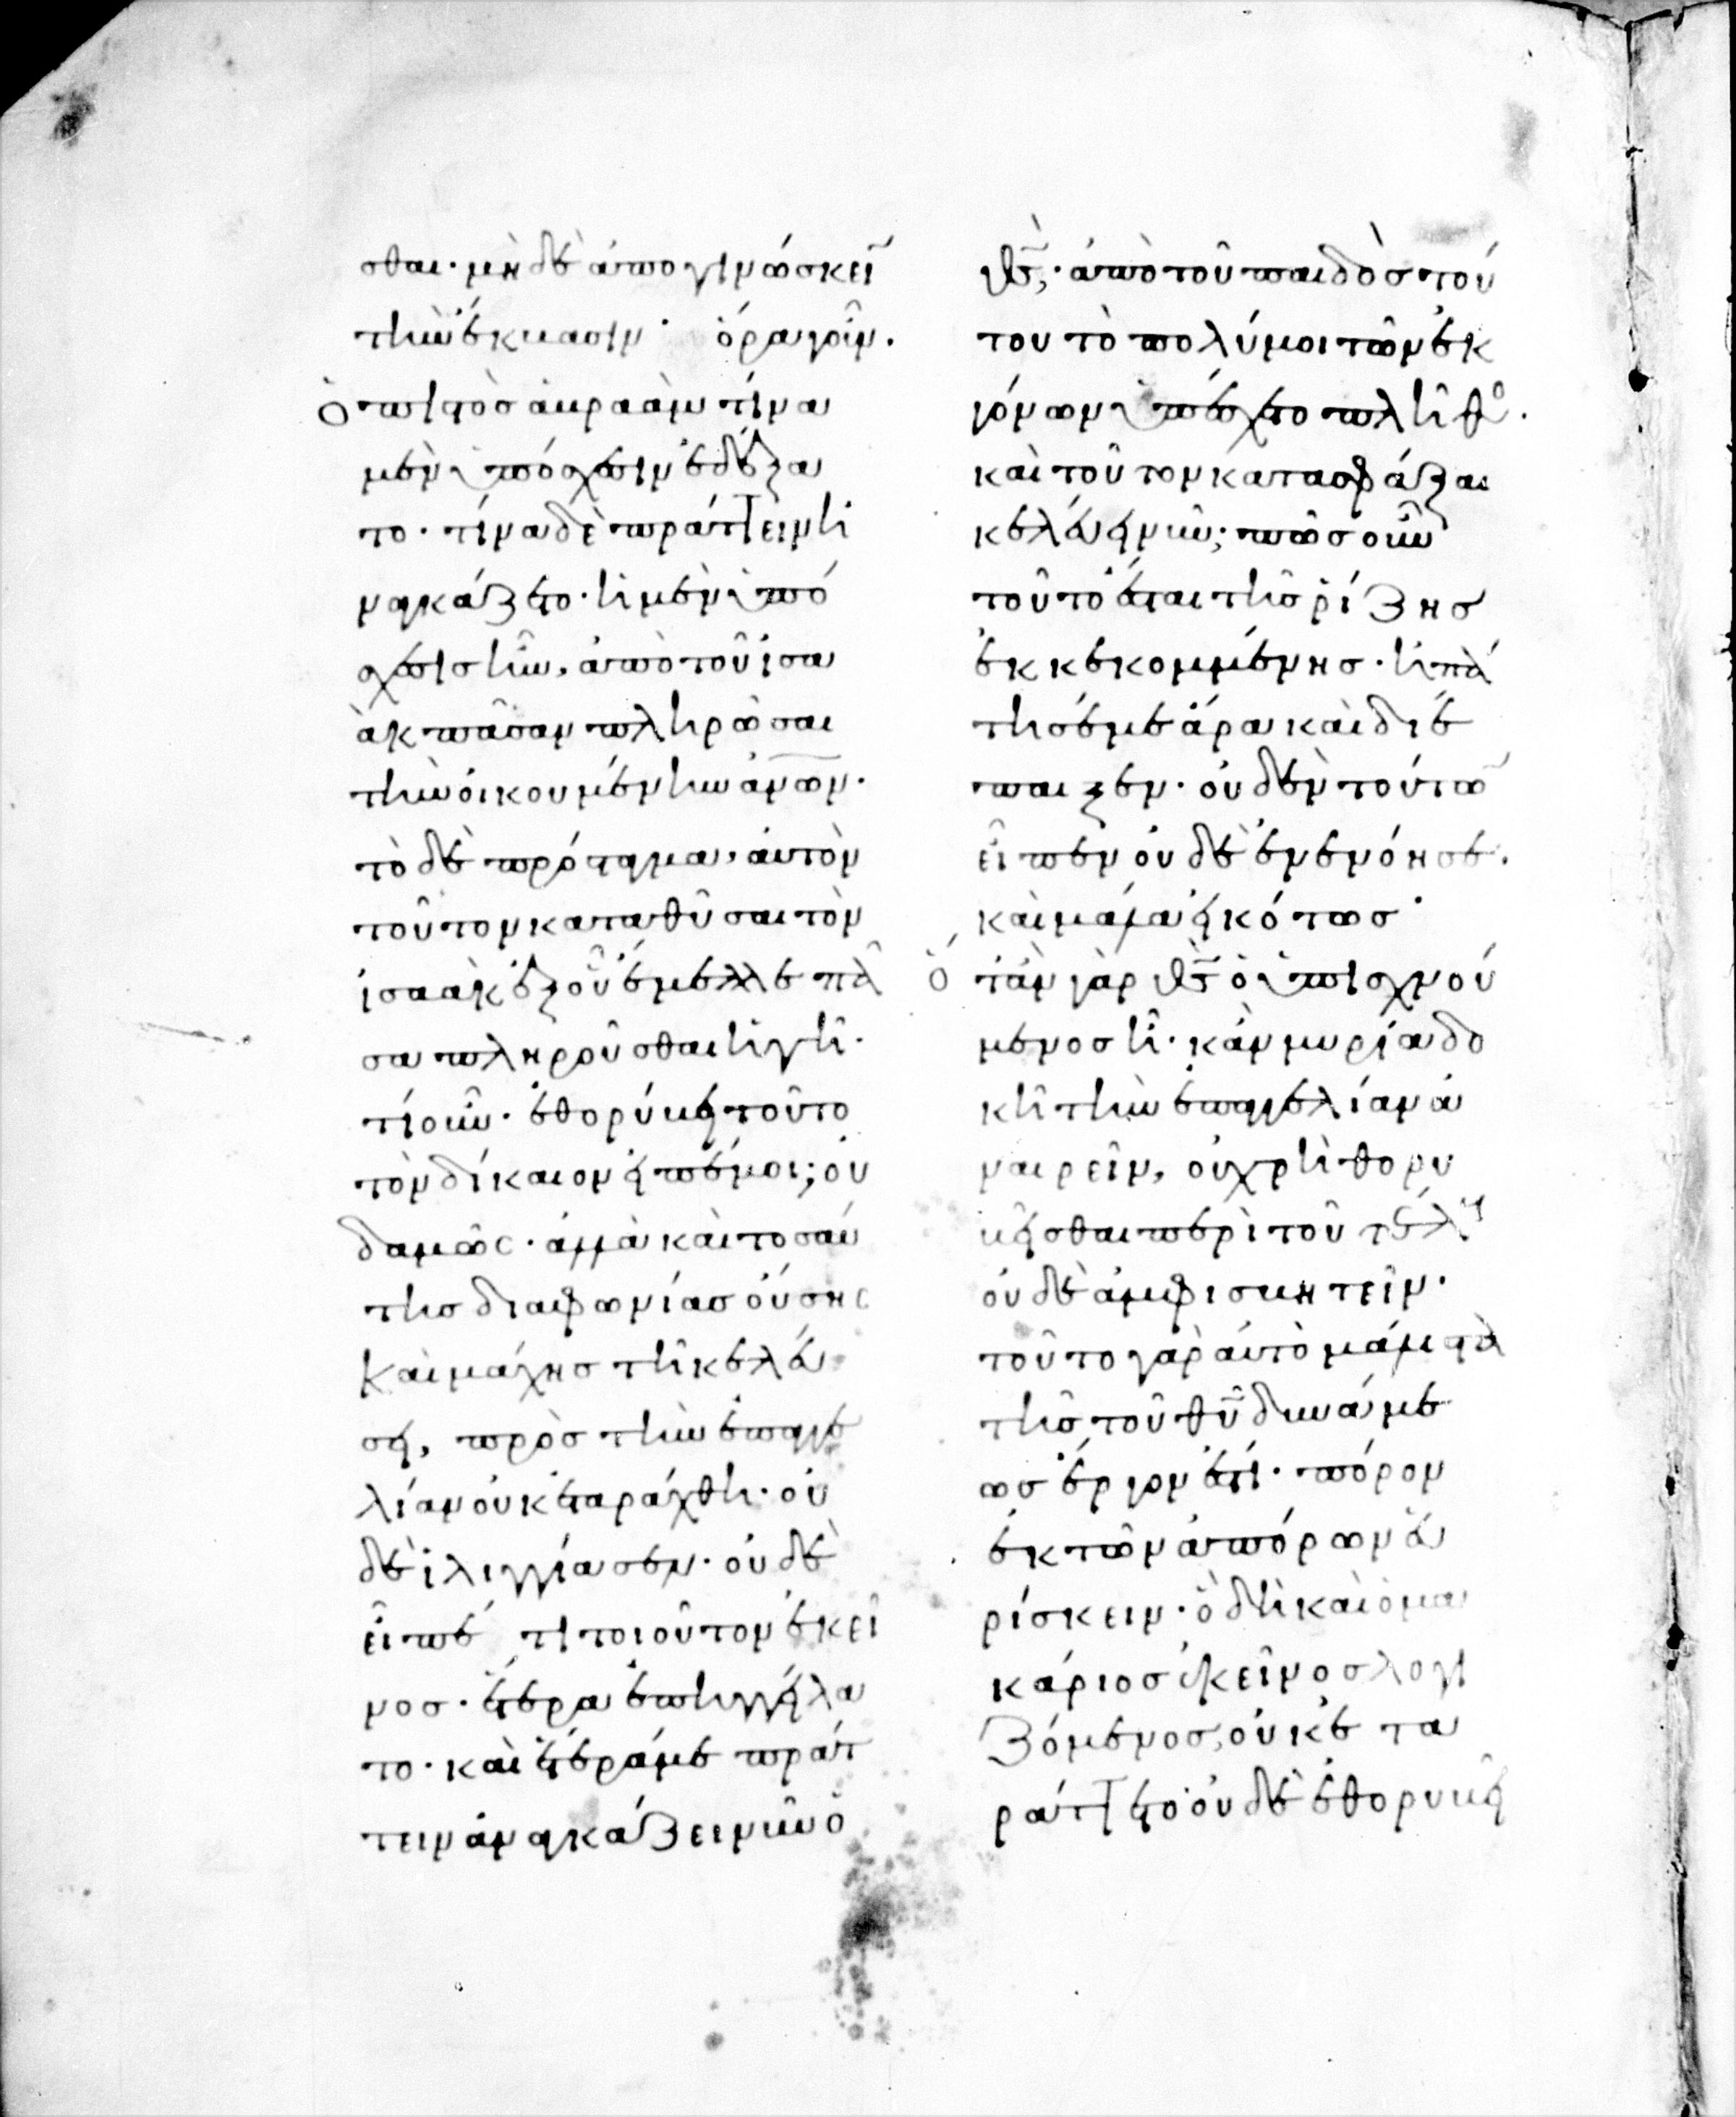 σθαι· μὴ δὲ ἀπογινώσκει̅
τὴν ἔκβασιν· ὅρα γοῦν·
ὁ πιστὸς ἀβραὰμ τίνα
μὲν ὑπόσχεσιν ἐδέξα
το· τίνα δὲ πράττειν ἠ
ναγκάζετο· ἡ μὲν ὑπό
σχεσις ἦν, ἀπὸ τοῦ ἰσα
ὰκ πᾶσαν πληρῶσαι
τὴν οἰκουμένην ἀν̅ω̅ν·
τὸ δὲ πρόσταγμα, αὐτὸν
τοῦτον καταθῦσαι τὸν
ἰσαὰκ ἐξ οὗ ἔμελλε πᾶ
σα πληροῦσθαι ἡ γῆ·
τί οὖν· ἐθορύβει τοῦτο
τὸν δίκαιον εἰπέ μοι; οὐ
δαμῶς· ἀλλὰ καὶ τοσαύ
της διαφωνίας οὔσης
καὶ μάχης τῇ κελεύ
σει, πρὸς τὴν ἐπαγγε
λίαν οὐκ ἐταράχθη· οὐ
δὲ ἰλιγγίασεν· οὐ δὲ
εἶπέ τι τοιοῦτον ἐκεῖ
νος· ἕτερα ἐπηγγείλα
το· καὶ ἕτερά με πράτ
τειν ἀναγκάζει νῦν ὁ
θ̅ς̅; ἀπὸ τοῦ παιδὸς τού
του τὸ πολύ μοι τῶν ἐκ
γόνων ὑπέσχετο πλῆθο̅ς·
καὶ τοῦτον κατασφάξαι
κελεύει νῦν; πῶς οὖν
τοῦτο ἔσται τῆς ῥίζης
ἐκκεκομμένης· ἠπά
τησέ με ἄρα καὶ διέ
παιξεν· οὐδὲν τούτω̅
εἶπεν οὐ δὲ ἐνενόησε·
καὶ μάλα εἰκότως·
ὅταν γὰρ θ̅ς̅ ὁ ὑπισχνού
μενος ᾖ· κἂν μυρία δο
κῇ τὴν ἐπαγγελίαν ἀ
ναιρεῖν, οὐ χρὴ θορυ
βεῖσθαι περὶ τοῦ τέλους
οὐ δὲ ἀμφισβητεῖν·
τοῦτο γὰρ αὐτὸ μάλιστα
τῆς τοῦ θ̅υ̅ δυνάμε
ως ἔργον ἐστί· πόρον
ἐκ τῶν ἀπόρων εὑ
ρίσκειν· ὃ δὴ καὶ ὁ μα
κάριος ἐκεῖνος λογι
ζόμενος, οὐκ ἐτα
ράττετο οὐ δὲ ἐθορυβεῖ